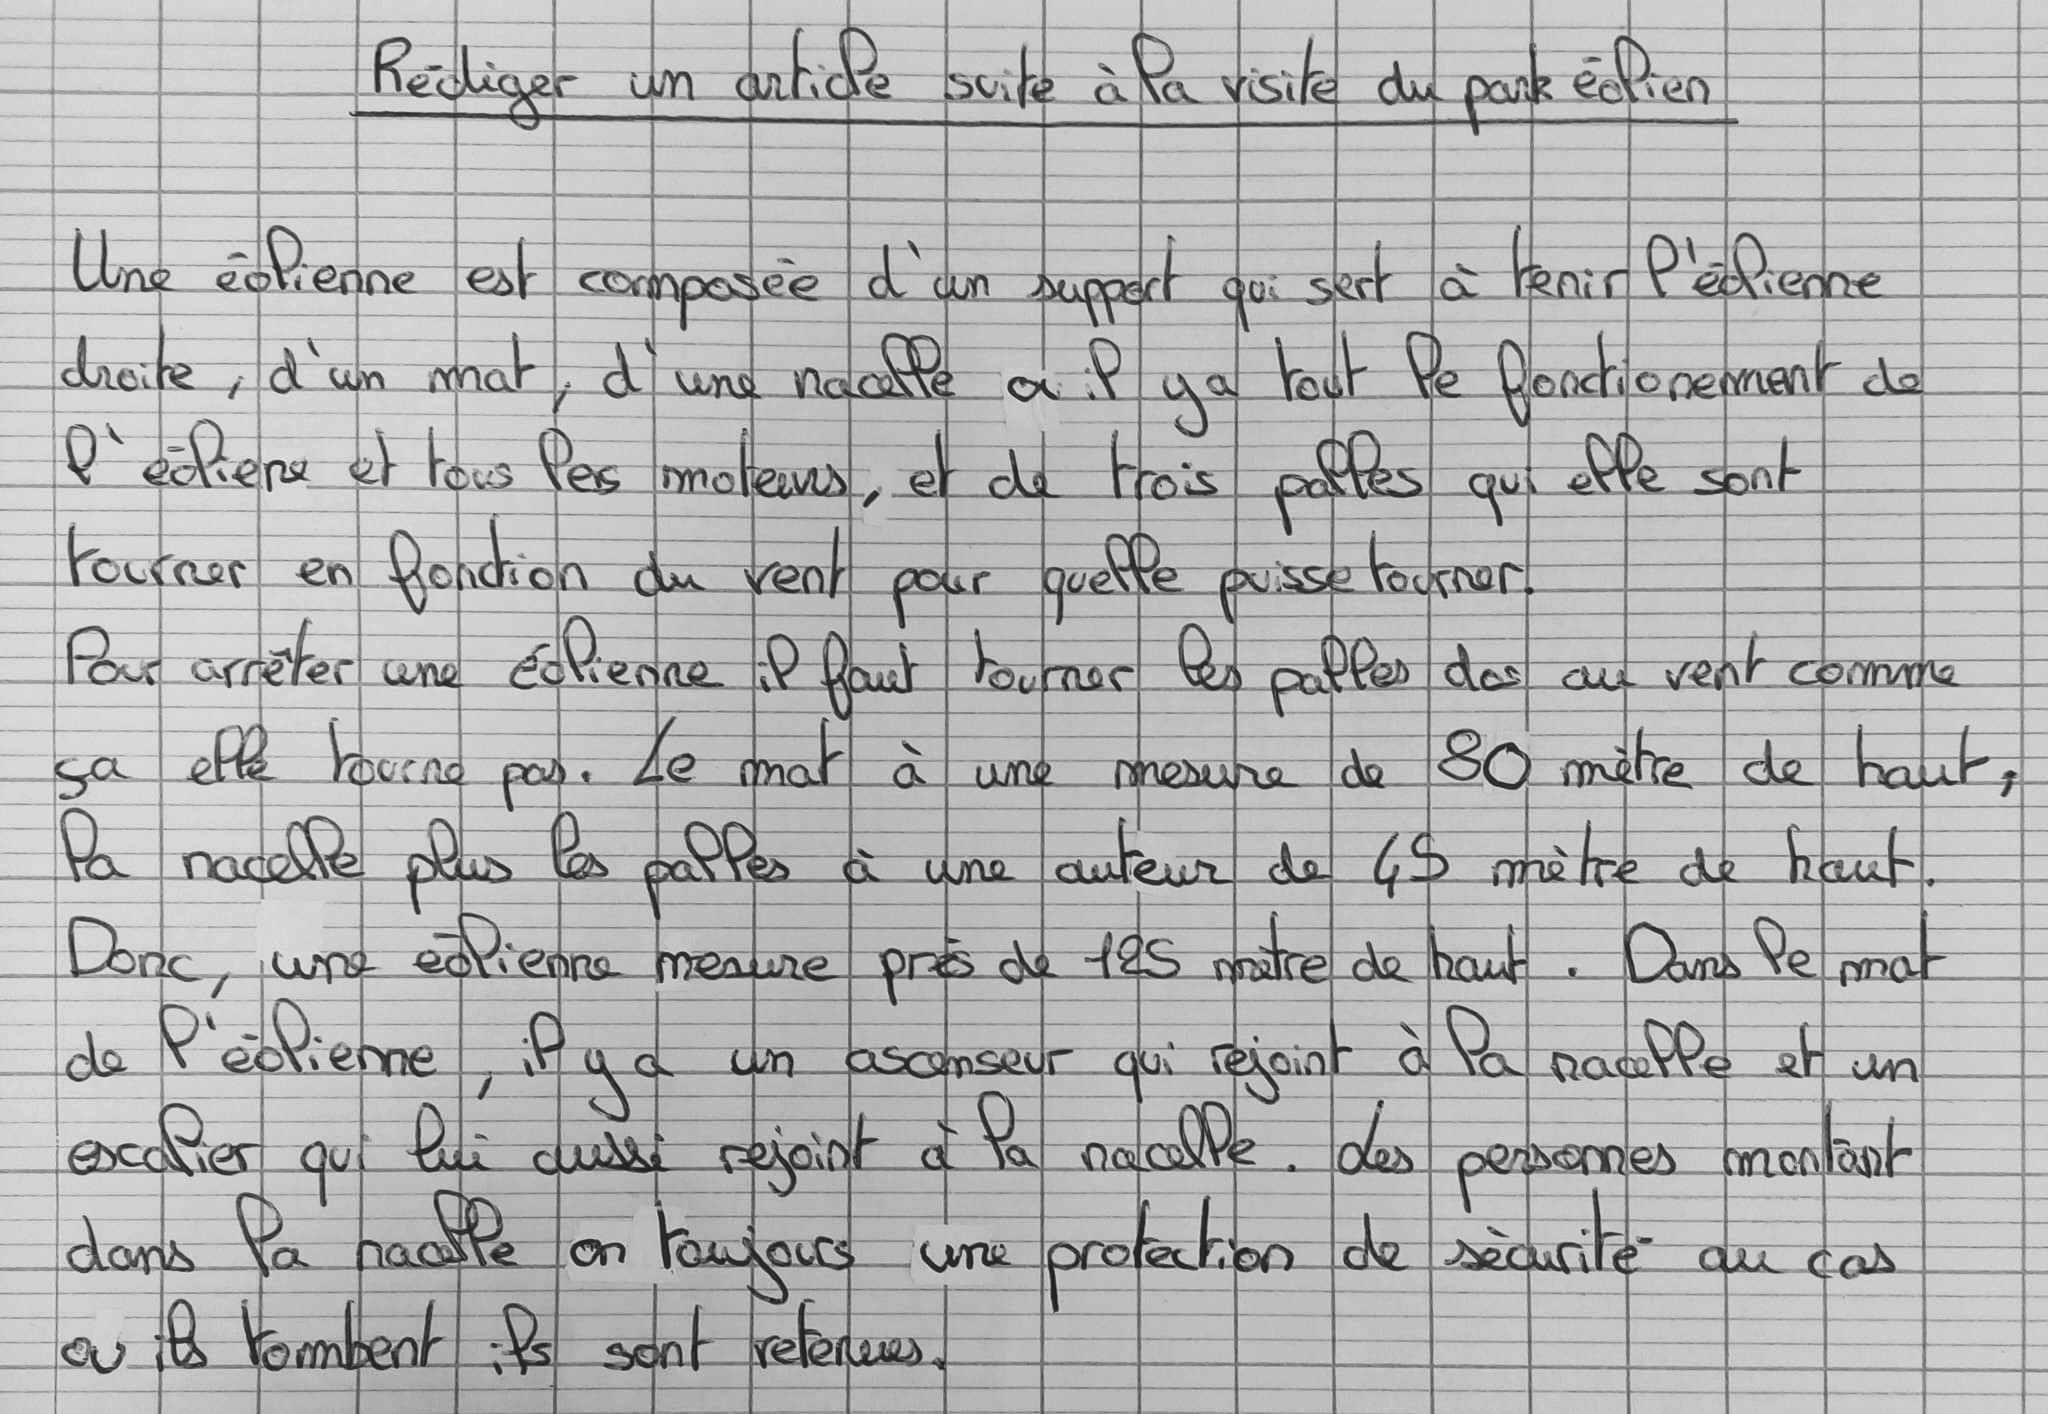 Rédiger un article suite à la visite du park éolien
Une éolienne est composée d'un support qui sert à tenir l'éolienne
droite, d'un mat, d'une nacelle ou il y a tout le fonctionement de
l'éoliene et tous les moteurs, et de trois palles qui elle sont
tourner en fonction du vent pour quelle puisse tourner.
Pour arrêter une éolienne il faut tourner les palles dos au vent comme
sa elle tourne pas. Le mat à une mesure de 80 mètre de haut,
la nacelle plus les palles à une auteur de 45 mètre de haut.
Donc, une éolienne mesure près de 125 mètre de haut. Dans le mat
de l'éolienne, il y a un ascenseur qui rejoint à la nacelle et un
escalier qui lui aussi rejoint à la nacelle. des personnes montant
dans la nacelle on toujours une protection de sècurité au cas
ou ils tombent ils sont retenues.